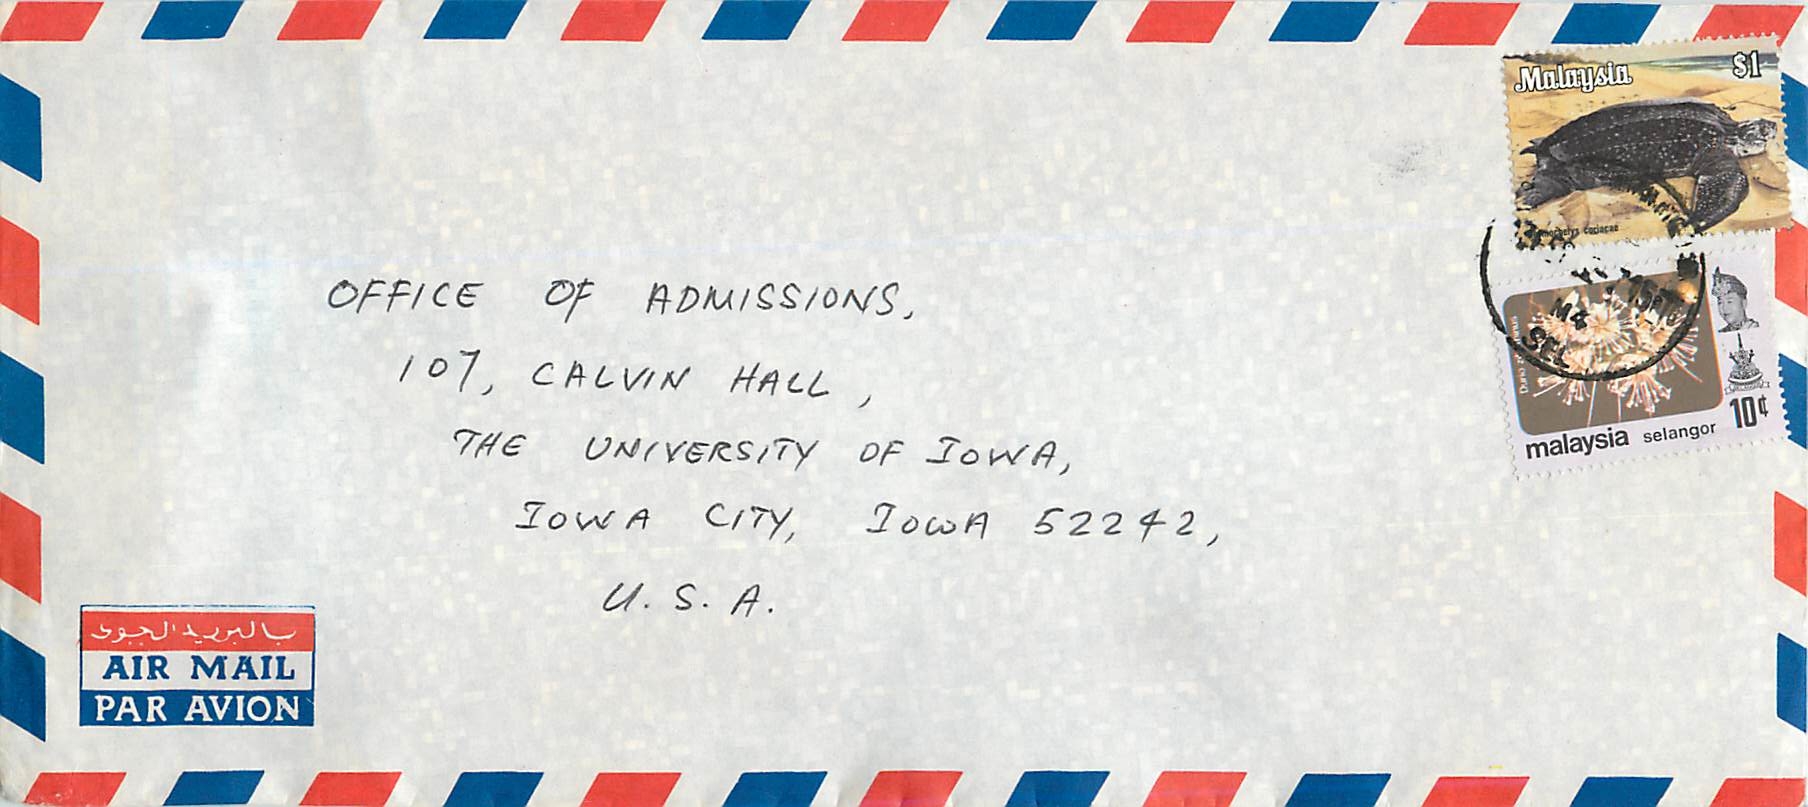 Malaysia $1
OFFICE OF ADMISSIONS,
107, CALVIN HALL,
THE UNIVERSITY OF IOWA,
IOWA CITY, IOWA 52242,
U. S. A.
SEL
10¢
malaysia selangor
بالبريد الجوى
AIR MAIL
PAR AVION